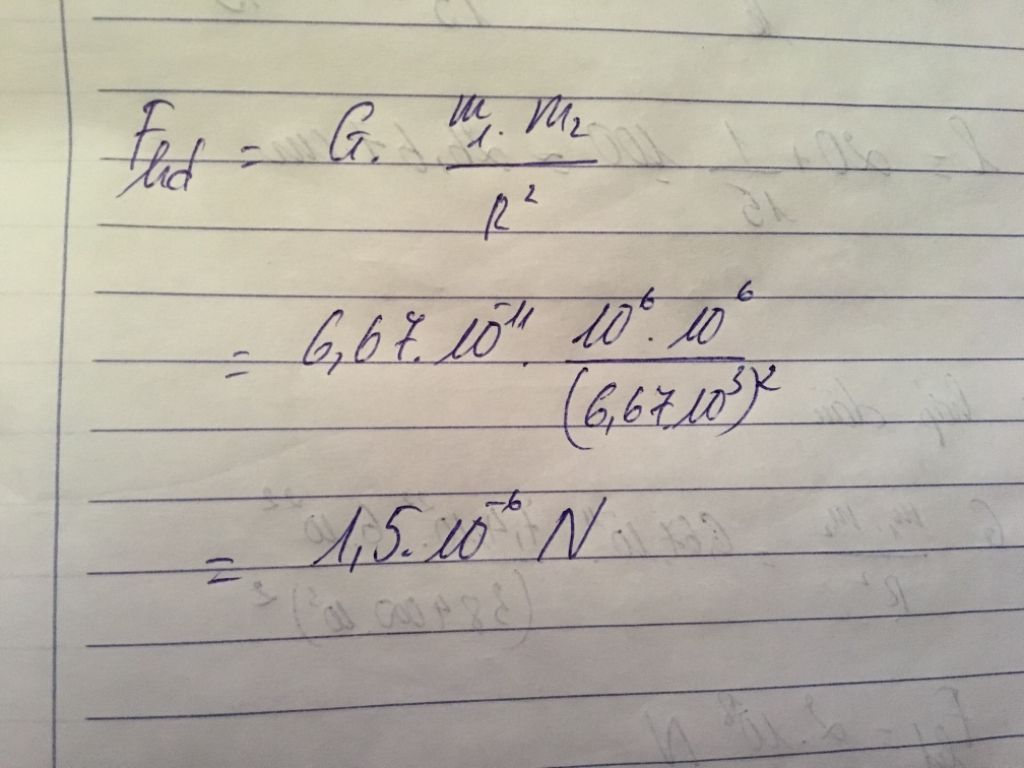 F_hd = G. m_1 . m_2 / R^2
= 6,67.10^-11 . 10^6 . 10^6 / (6,67.10^3)^2
= 1,5.10^-6 N